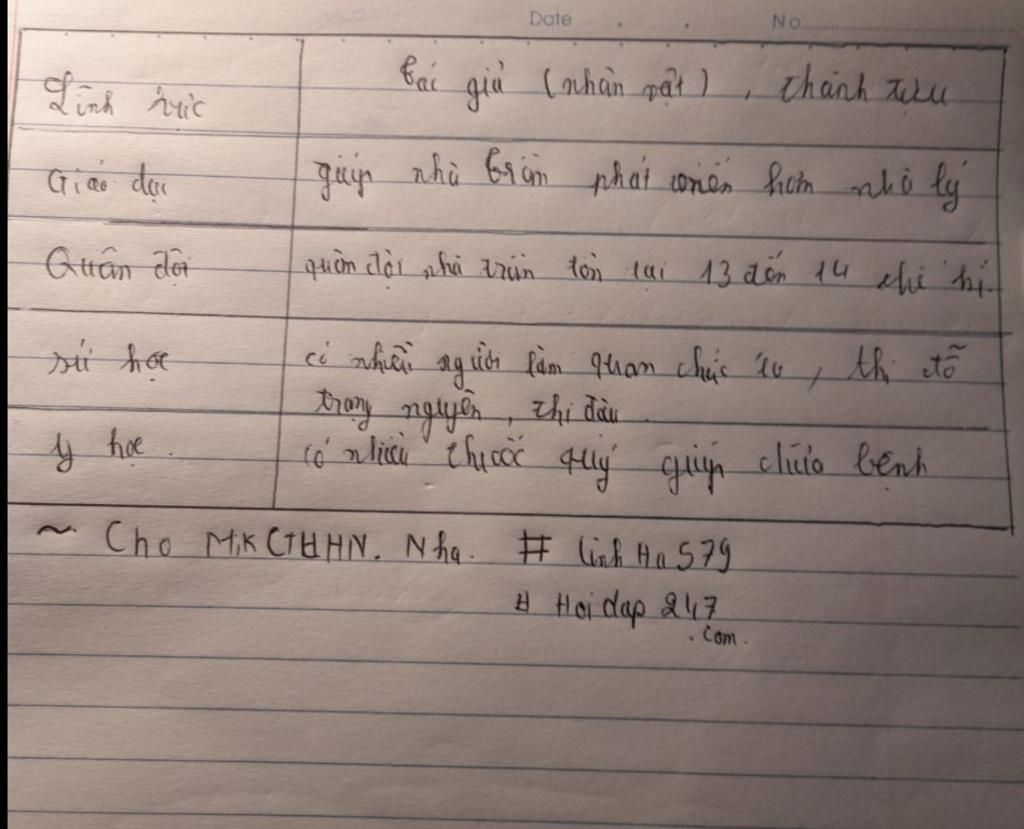 Date . . No
Lĩnh vực
Tác giả (nhân vật), thành tựu
Giáo dục
giúp nhà Trần phát triển hơn nhà lý
Quân đội
quân đội nhà trần tồn tại 13 đến 14 thế kỉ.
sử học
có nhiều người làm quan chức to, thi đỗ
trạng nguyên, thi đậu
y học.
có nhiều thuốc quý giúp chữa bệnh
~ Cho M,K CTLHHN. Nha. # Linh Ha 579
# Hoidap 247
.com.